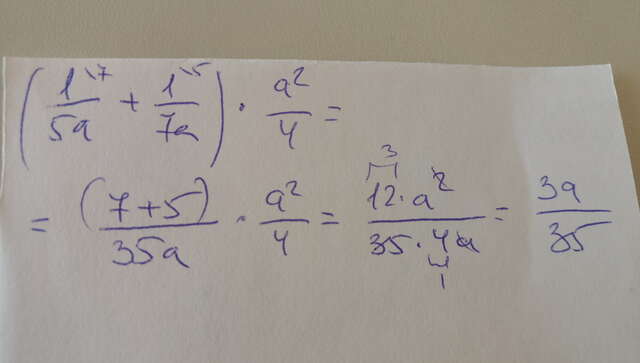 (1\7/5a + 1\5/7a) · a²/4 =
= (7+5)/35a · a²/4 = 12·a²/35·4a = 3a/35
3
1